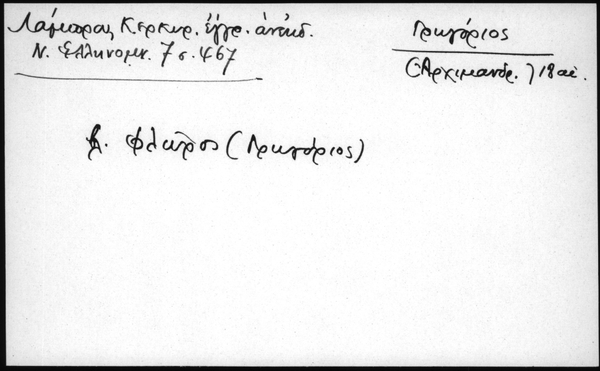 Λάμπρος Κερκυρ. ἔγγρ. ἀνέκδ.
Ν. Ἑλληνομν. 7 σ. 467
Γρηγόριος
(Ἀρχιμανδρ.) 18 αἰ.
β. Φλῶρος (Γρηγόριος)